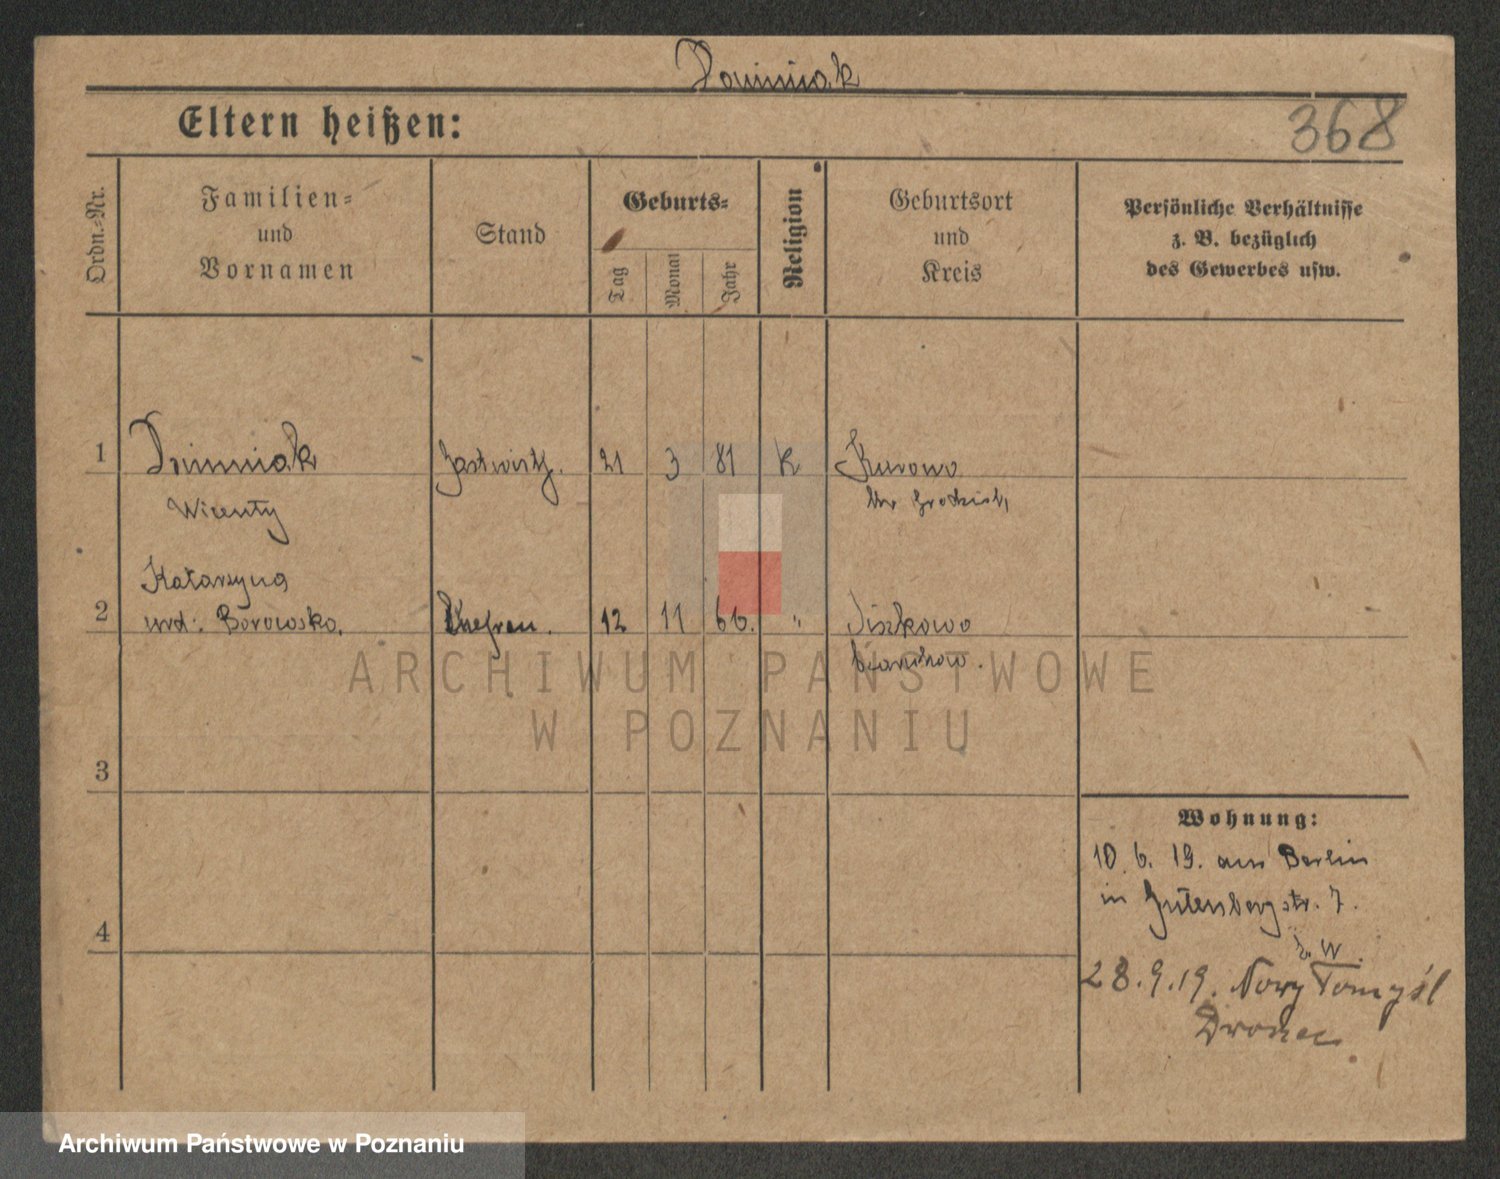 Dominiak
Eltern heißen:
368
Ordn.-Nr.
Familien-
und
Vornamen
Stand
Geburts-
Tag
Monat
Jahr
Religion
Geburtsort
und
Kreis
Persönliche Verhältnisse
z. B. bezüglich
des Gewerbes usw.
1
Dominiak
Gastwirth.
21
3
81
K
Kurowo
Wicenty
Kr Grodzisk
Katarzyna
2
urd. Borowska.
Ehefrau.
12
11
"
ARCHIWUM PAŃSTWOWE
W POZNANIU
3
Wohnung:
10. 6. 19. aus Berlin
in Gutenbergstr. 7.
4
z. W.
28.9.19. Nowy Tomyśl
Archiwum Państwowe w Poznaniu